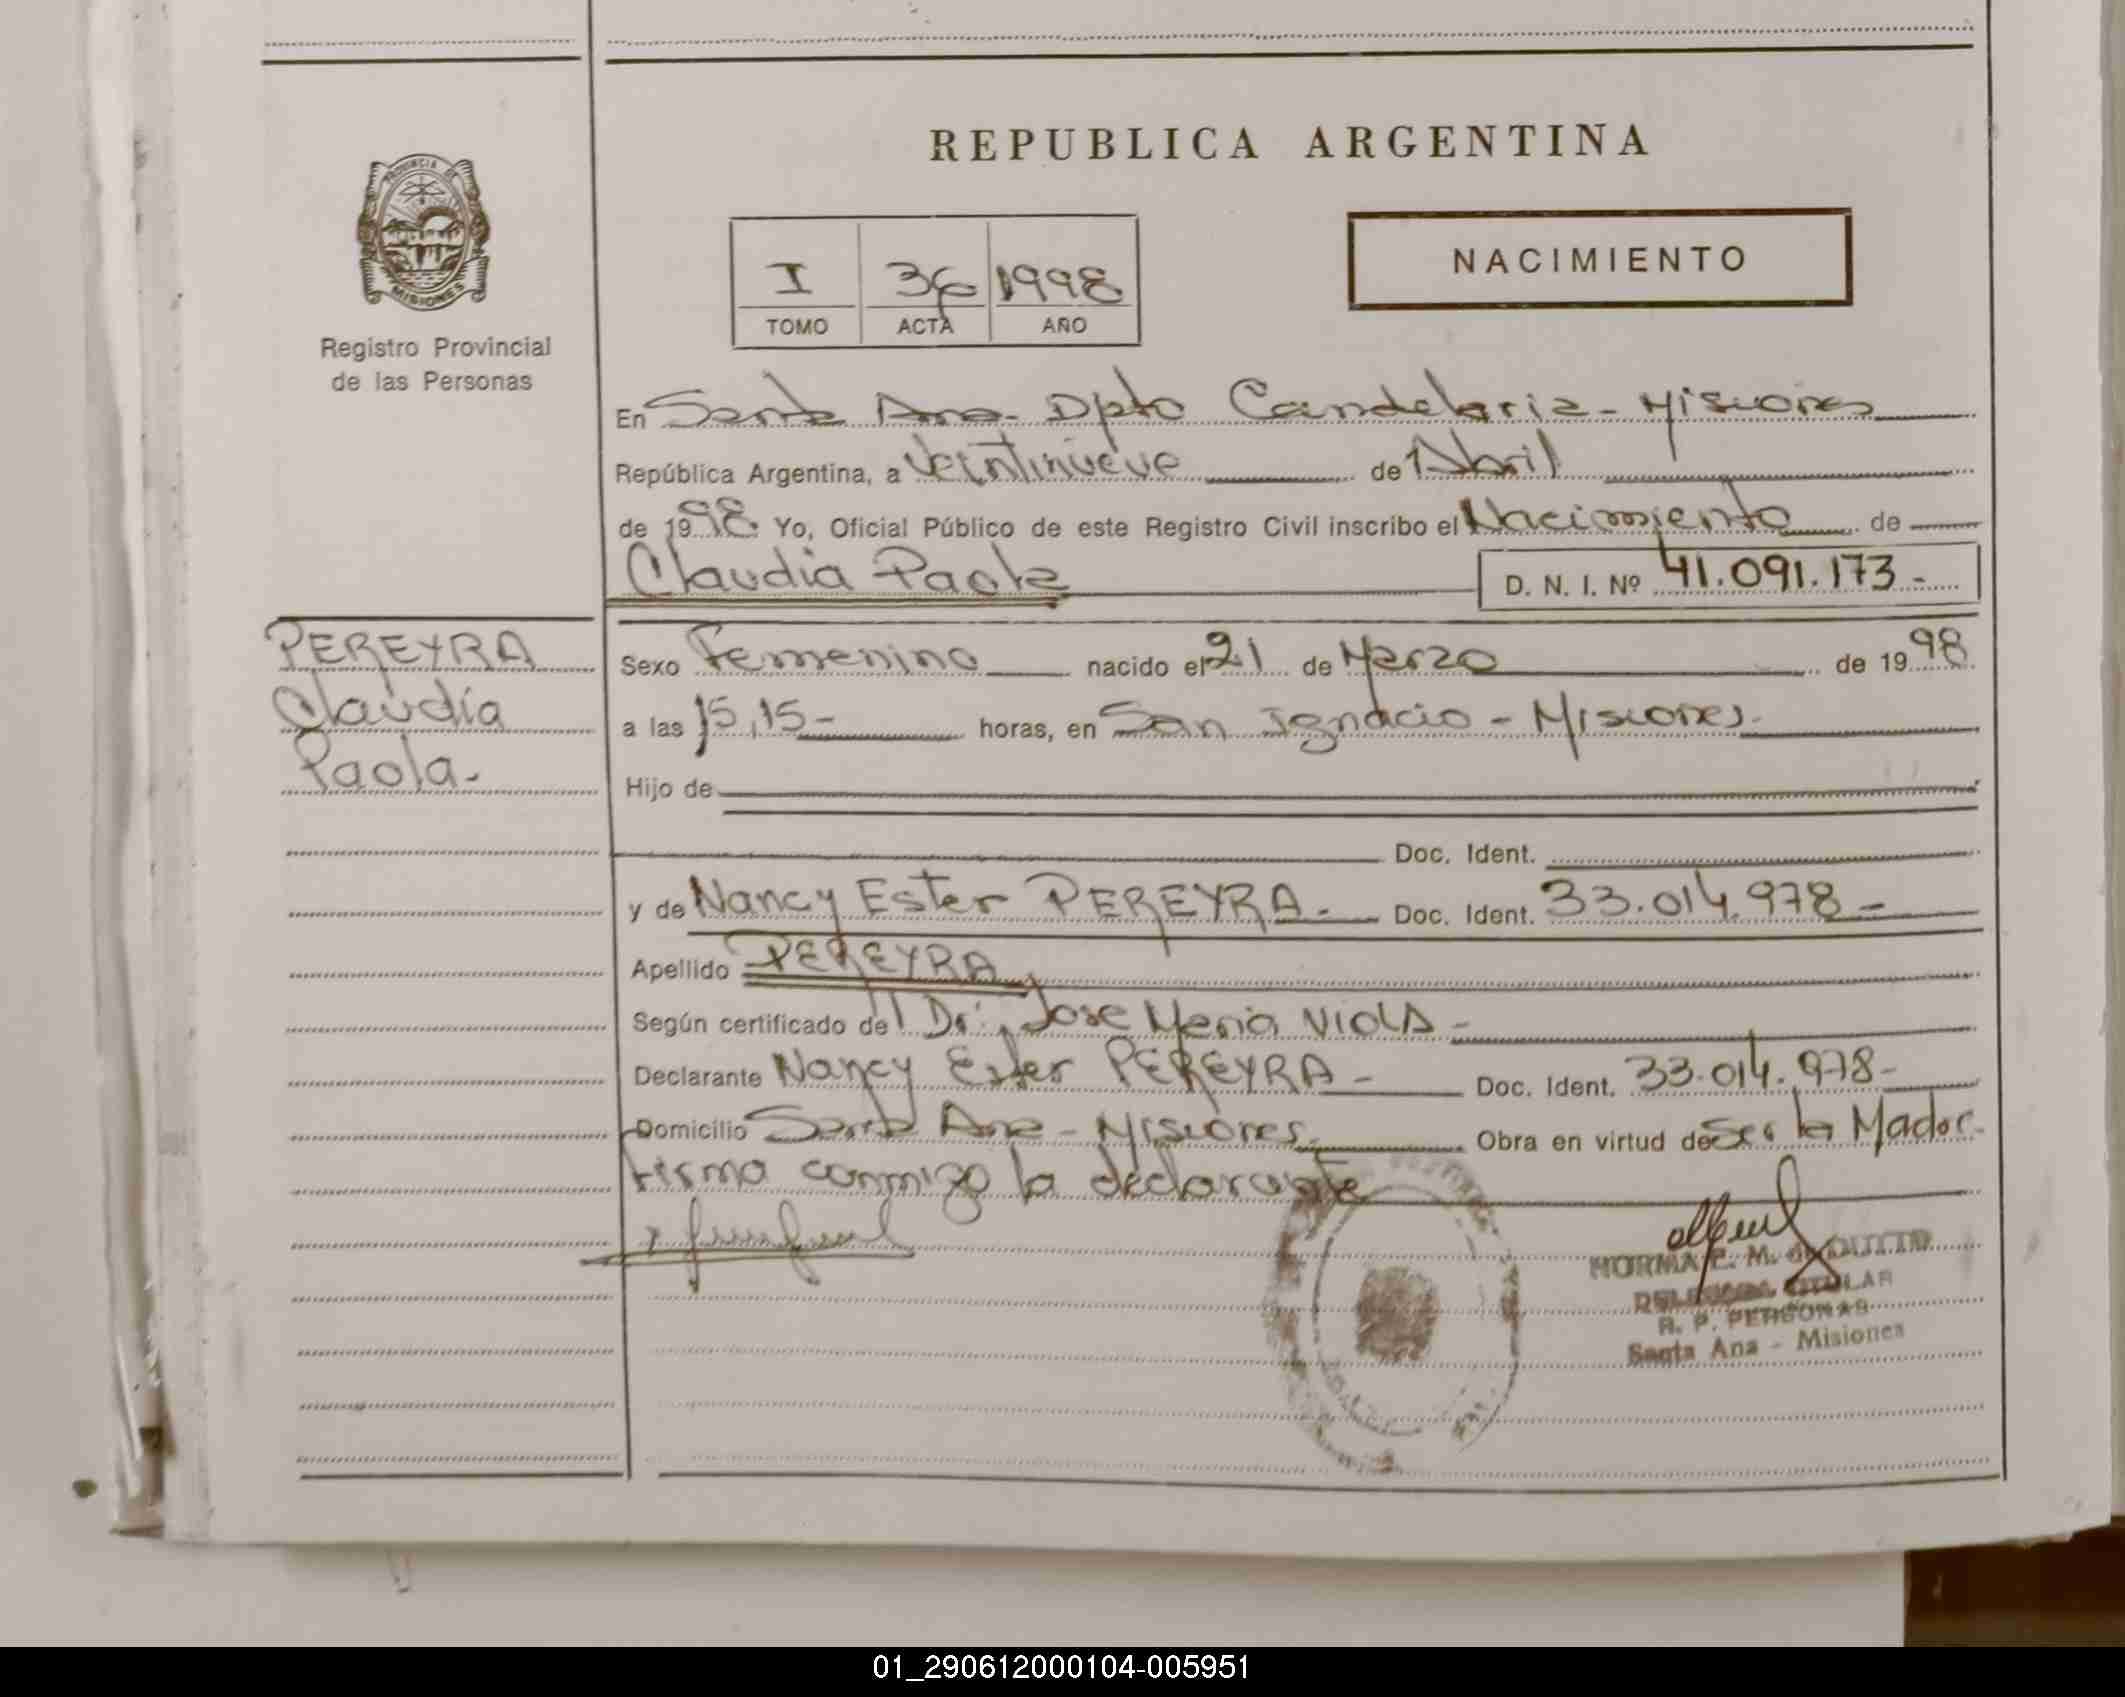 REPUBLICA ARGENTINA
PROVINCIA DE
MISIONES
Registro Provincial
de las Personas
NACIMIENTO
I 36 1998
TOMO ACTA AÑO
En Santa Ana - Dpto Candelaria - Misiones
República Argentina, a Veintinueve de Abril
de 1998. Yo, Oficial Público de este Registro Civil inscribo el Nacimiento de
Claudia Paola
D. N. I. Nº 41.091.173.-
PEREYRA
Claudia
Paola.
Sexo Femenino nacido el 21 de Marzo de 1998
a las 15,15- horas, en San Ignacio - Misiones.
Hijo de
Doc. Ident.
y de Nancy Ester PEREYRA.- Doc. Ident. 33.014.978-
Apellido PEREYRA
Según certificado del Dr. Jose Maria Viola-
Declarante Nancy Ester PEREYRA- Doc. Ident. 33.014.978-
Domicilio Santa Ana - Misiones. Obra en virtud de Ser la Madre.
firma conmigo la declarante
NORMA E. M. de
DELEGADA TITULAR
R. P. PERSONAS
Santa Ana - Misiones
01_290612000104-005951